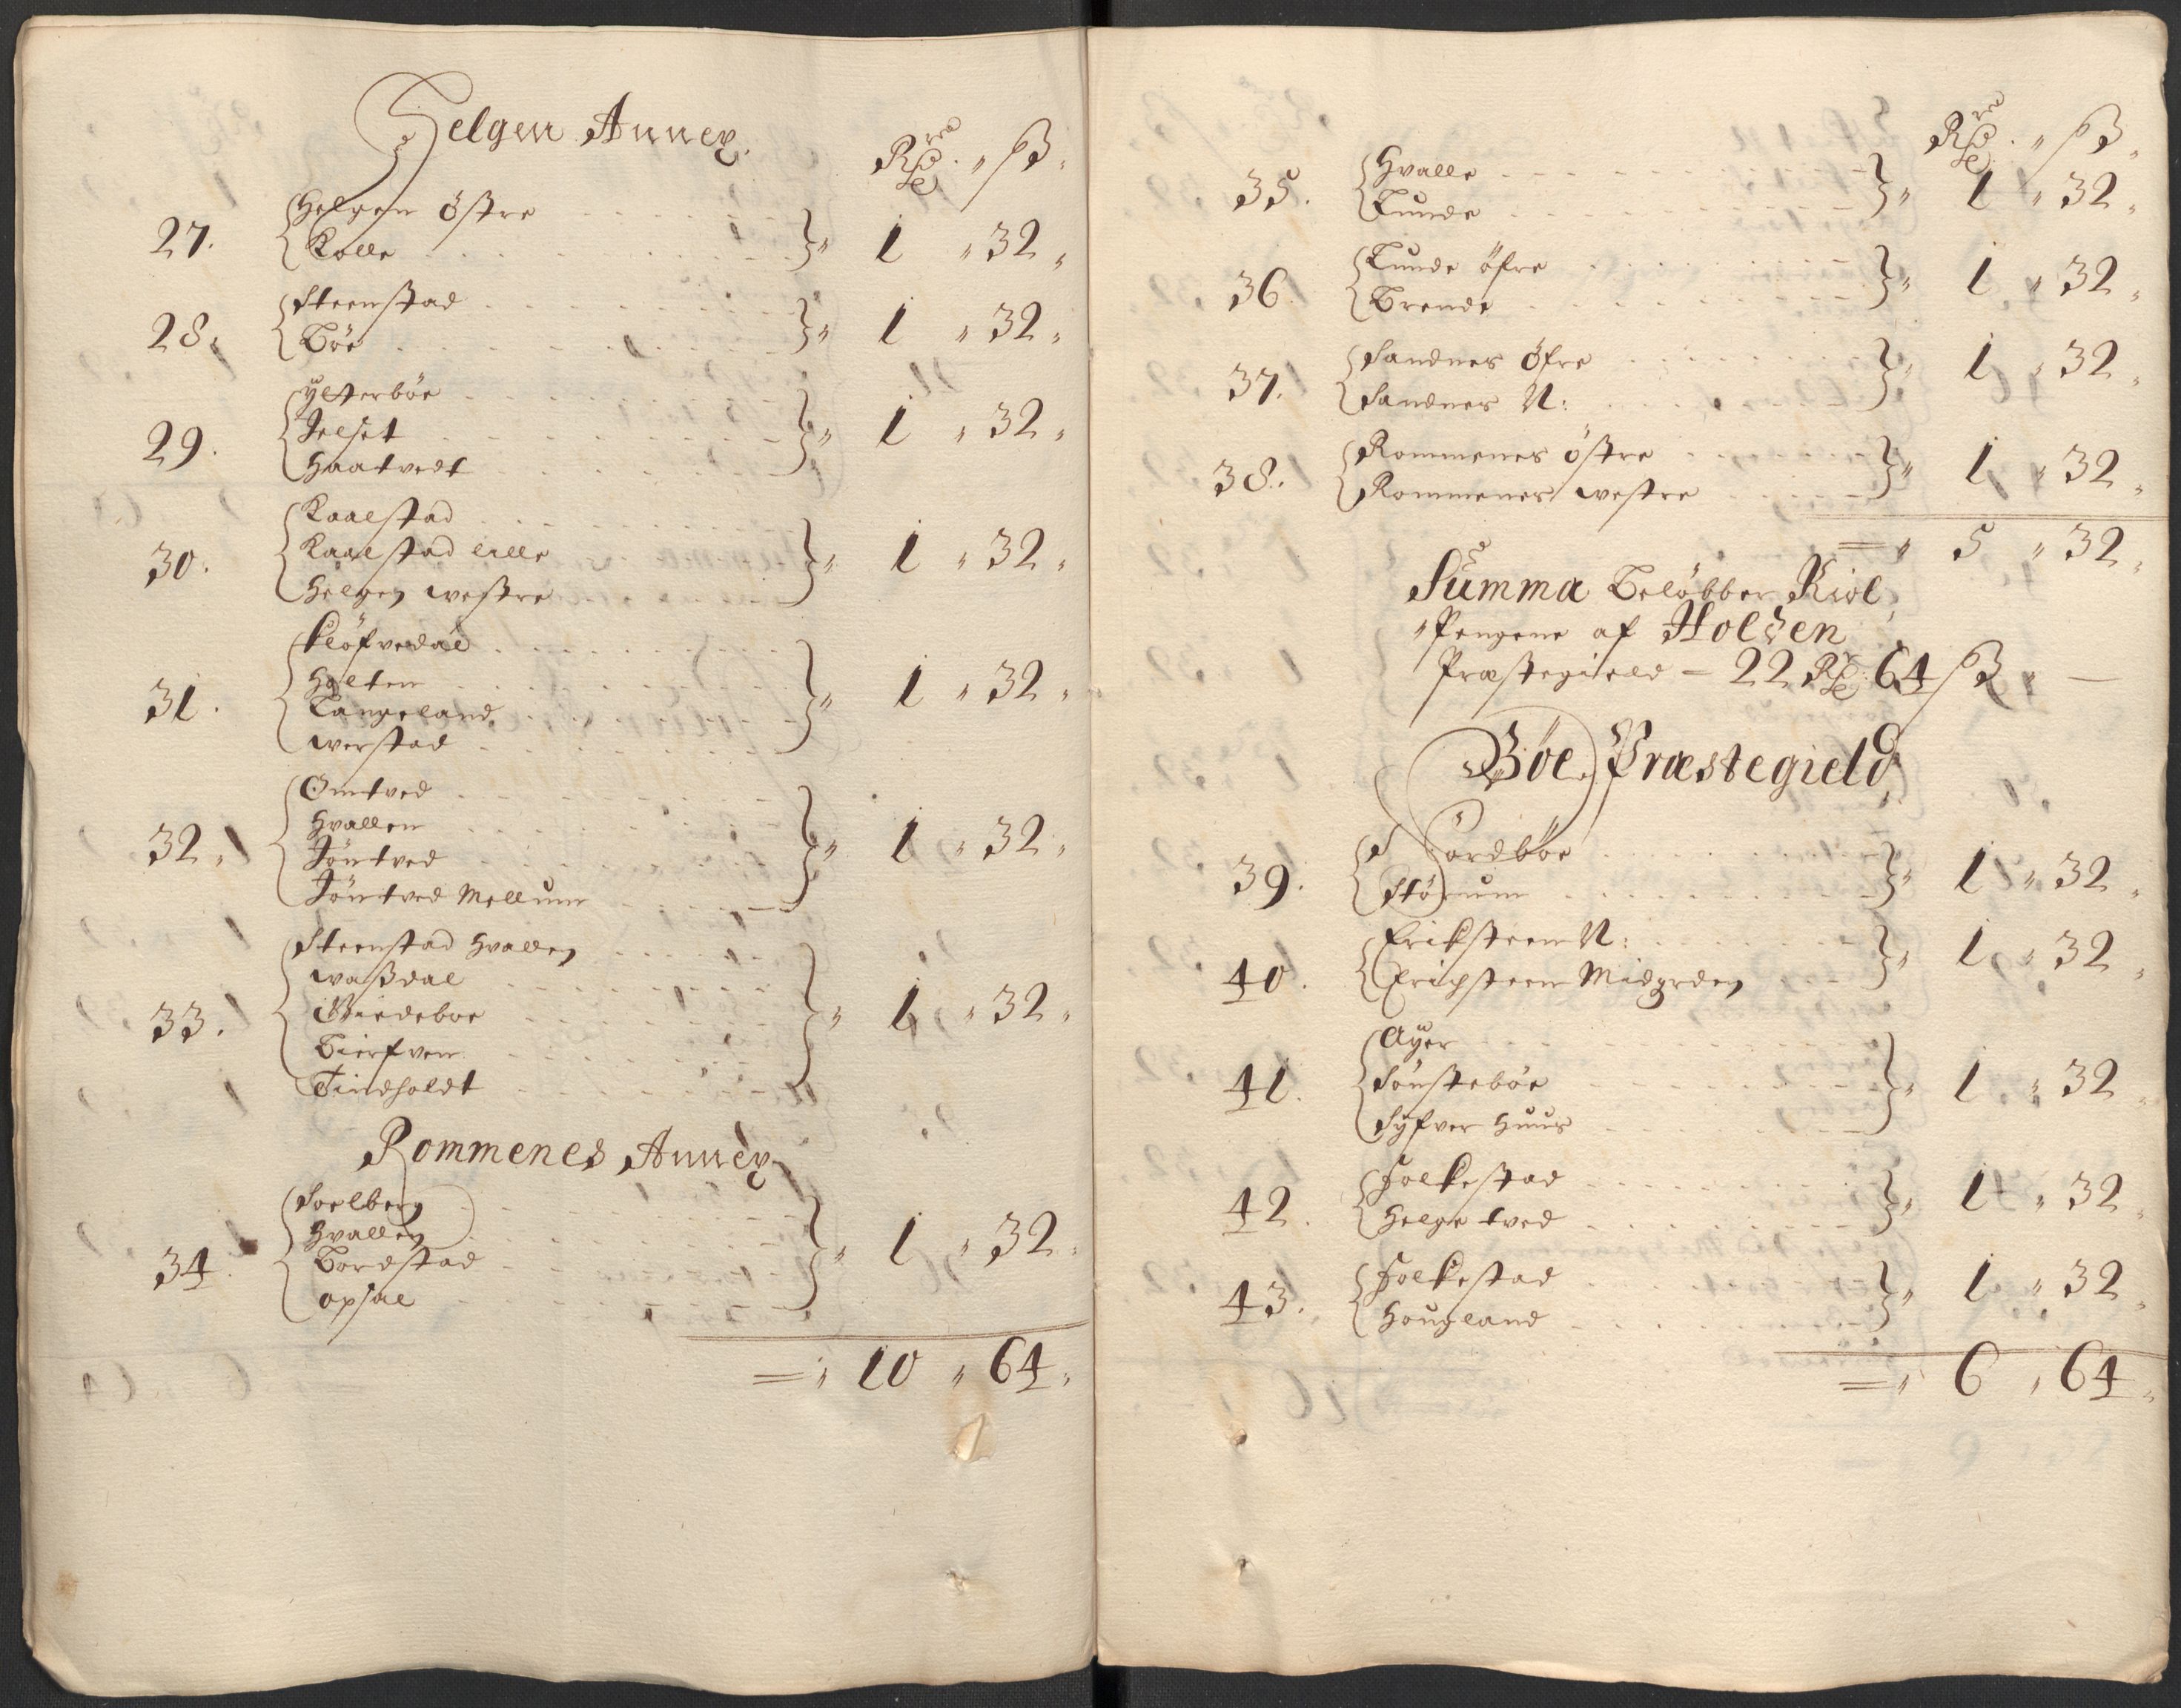 Helgen Annex.
Rdr ß
27. Helgen östre
Kolle 1 32
28. Steenstad
Böe 1 32
29. ytterböe
Jelset
Haatvedt 1 32
30. Kaalstad
Kaalstad lille
Helgen westre 1 32
31. Klöfvedal
Holten
Langeland
werstad 1 32
32. Omtved
Hvallen
Jöntved
Jöntved Mellum 1 32
33. Steenstad Hvallen
waßdal
Giedeboe
Bierfven
Tindholdt 1 32
Rommenes Annex
34. Soelberg
Hvallen
Bordstad
opsal 1 32
= 10 64
Rdr ß
35. Hvalle
Lunde 1 32
36. Lunde öfre
Brende 1 32
37. Sandnes Öfre
Sandnes N: 1 32
38. Rommenes östre
Rommenes westre 1 32
= 5 32
Summa Belöbber Kiöl
Pengene af Holden
Præstegield - 22 Rdr 64 ß
Böe Præstegield
39. Nordböe
Störum 1 32
40. Eriksteen N:
Erichsteen Midgrden 1 32
41. Ayer
Sönsteböe
Syfver Huus 1 32
42. Folkestad
Helge tved 1 32
43. Folkestad
Hougland 1 32
= 6 64